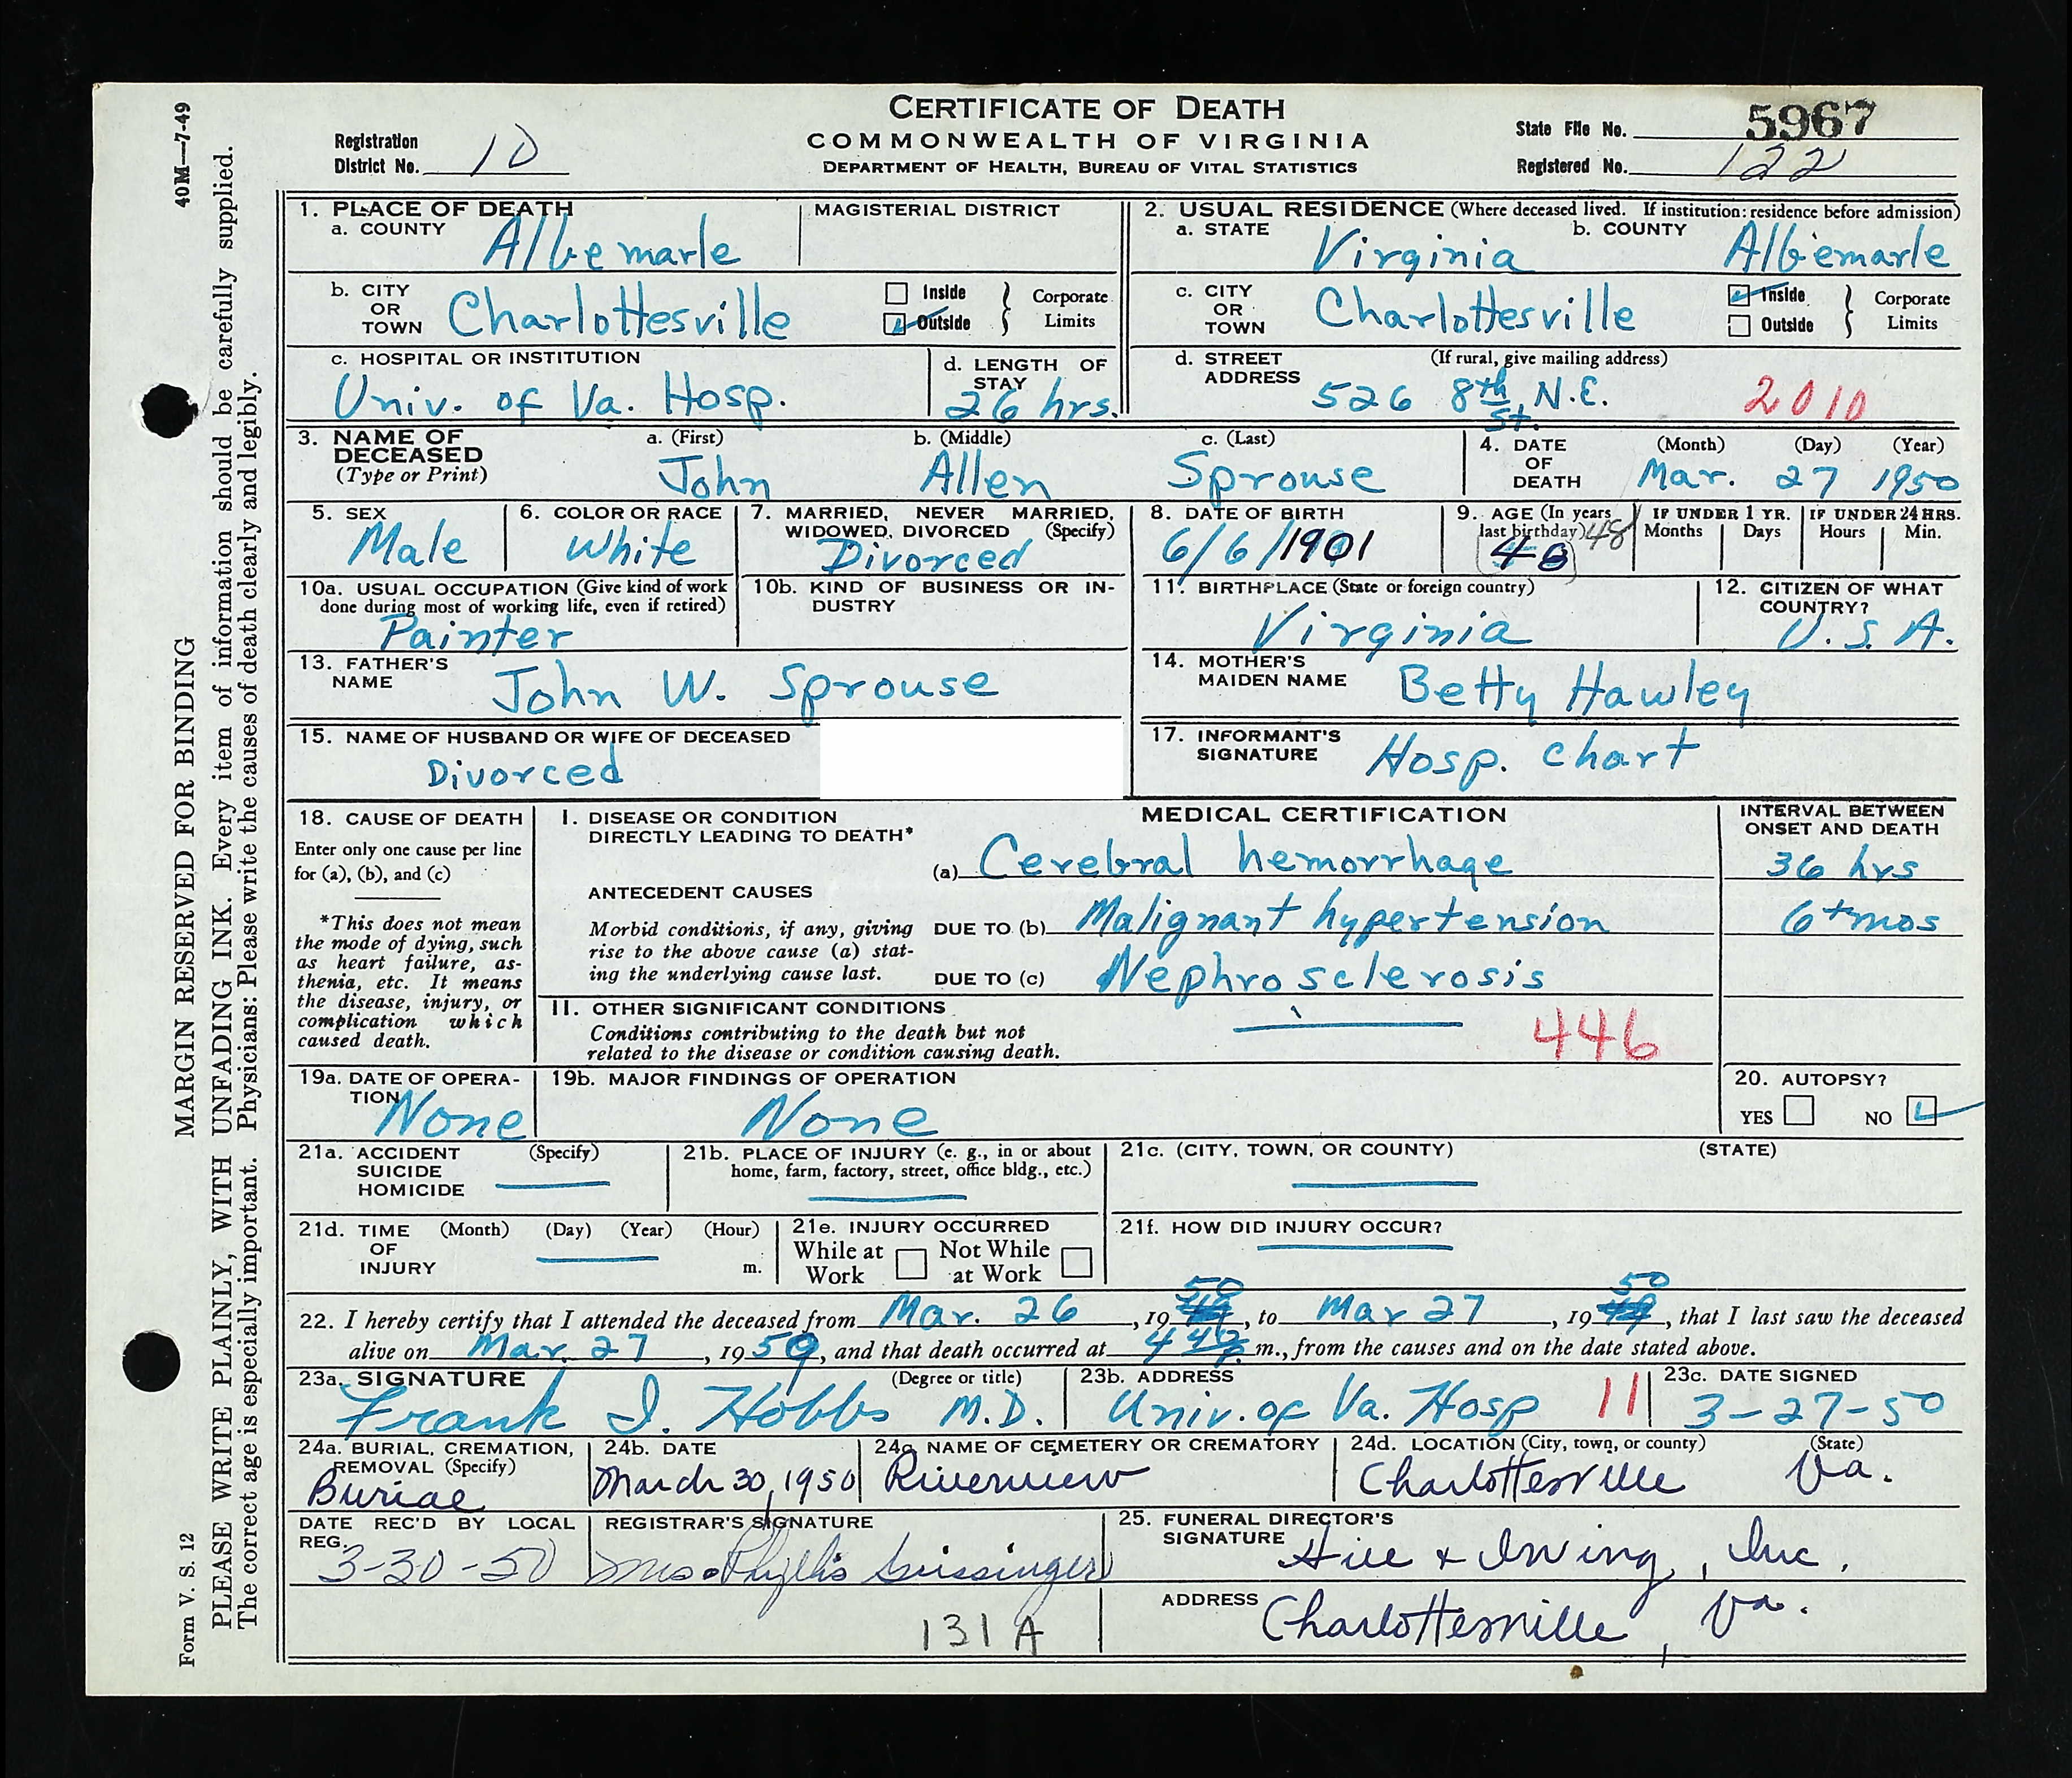 CERTIFICATE OF DEATH
COMMONWEALTH OF VIRGINIA
DEPARTMENT OF HEALTH, BUREAU OF VITAL STATISTICS
Registration District No. 10
State File No. 5967
Registered No. 122
40M—7-49
MARGIN RESERVED FOR BINDING
PLEASE WRITE PLAINLY, WITH UNFADING INK. Every item of information should be carefully supplied.
The correct age is especially important. Physicians: Please write the causes of death clearly and legibly.
Form V. S. 12
1. PLACE OF DEATH
a. COUNTY Albemarle
MAGISTERIAL DISTRICT
2. USUAL RESIDENCE (Where deceased lived. If institution: residence before admission)
a. STATE Virginia b. COUNTY Albemarle
b. CITY OR TOWN Charlottesville Inside Outside Corporate Limits
c. CITY OR TOWN Charlottesville Inside Outside Corporate Limits
c. HOSPITAL OR INSTITUTION Univ. of Va. Hosp.
d. LENGTH OF STAY 26 hrs.
d. STREET ADDRESS (If rural, give mailing address) 526 8th St. N.E. 2010
3. NAME OF DECEASED (Type or Print)
a. (First) John b. (Middle) Allen c. (Last) Sprouse
4. DATE OF DEATH (Month) (Day) (Year) Mar. 27 1950
5. SEX Male
6. COLOR OR RACE White
7. MARRIED, NEVER MARRIED, WIDOWED, DIVORCED (Specify) Divorced
8. DATE OF BIRTH 6/6/1901
9. AGE (In years last birthday) 48 48
IF UNDER 1 YR. Months Days
IF UNDER 24 HRS. Hours Min.
10a. USUAL OCCUPATION (Give kind of work done during most of working life, even if retired) Painter
10b. KIND OF BUSINESS OR INDUSTRY
11. BIRTHPLACE (State or foreign country) Virginia
12. CITIZEN OF WHAT COUNTRY? U.S.A.
13. FATHER'S NAME John W. Sprouse
14. MOTHER'S MAIDEN NAME Betty Hawley
15. NAME OF HUSBAND OR WIFE OF DECEASED Divorced
17. INFORMANT'S SIGNATURE Hosp. chart
18. CAUSE OF DEATH
Enter only one cause per line for (a), (b), and (c)
*This does not mean the mode of dying, such as heart failure, asthenia, etc. It means the disease, injury, or complication which caused death.
MEDICAL CERTIFICATION
INTERVAL BETWEEN ONSET AND DEATH
I. DISEASE OR CONDITION DIRECTLY LEADING TO DEATH*
(a) Cerebral hemorrhage 36 hrs
ANTECEDENT CAUSES
Morbid conditions, if any, giving rise to the above cause (a) stating the underlying cause last.
DUE TO (b) Malignant hypertension 6+ mos
DUE TO (c) Nephrosclerosis
II. OTHER SIGNIFICANT CONDITIONS
Conditions contributing to the death but not related to the disease or condition causing death.
446
19a. DATE OF OPERATION None
19b. MAJOR FINDINGS OF OPERATION None
20. AUTOPSY? YES NO
21a. ACCIDENT SUICIDE HOMICIDE (Specify)
21b. PLACE OF INJURY (e. g., in or about home, farm, factory, street, office bldg., etc.)
21c. (CITY, TOWN, OR COUNTY) (STATE)
21d. TIME OF INJURY (Month) (Day) (Year) (Hour) m.
21e. INJURY OCCURRED While at Work Not While at Work
21f. HOW DID INJURY OCCUR?
22. I hereby certify that I attended the deceased from Mar. 26, 1950, to Mar 27, 1950, that I last saw the deceased
alive on Mar. 27, 1950, and that death occurred at m., from the causes and on the date stated above.
23a. SIGNATURE (Degree or title) Frank I. Hobbs M.D.
23b. ADDRESS Univ. of Va. Hosp 11
23c. DATE SIGNED 3-27-50
24a. BURIAL, CREMATION, REMOVAL (Specify) Burial
24b. DATE March 30, 1950
24c. NAME OF CEMETERY OR CREMATORY Riverview
24d. LOCATION (City, town, or county) (State) Charlottesville Va.
DATE REC'D BY LOCAL REG. 3-30-50
REGISTRAR'S SIGNATURE Mrs. Phyllis
25. FUNERAL DIRECTOR'S SIGNATURE Hill & Irving, Inc.
ADDRESS Charlottesville, Va.
131A